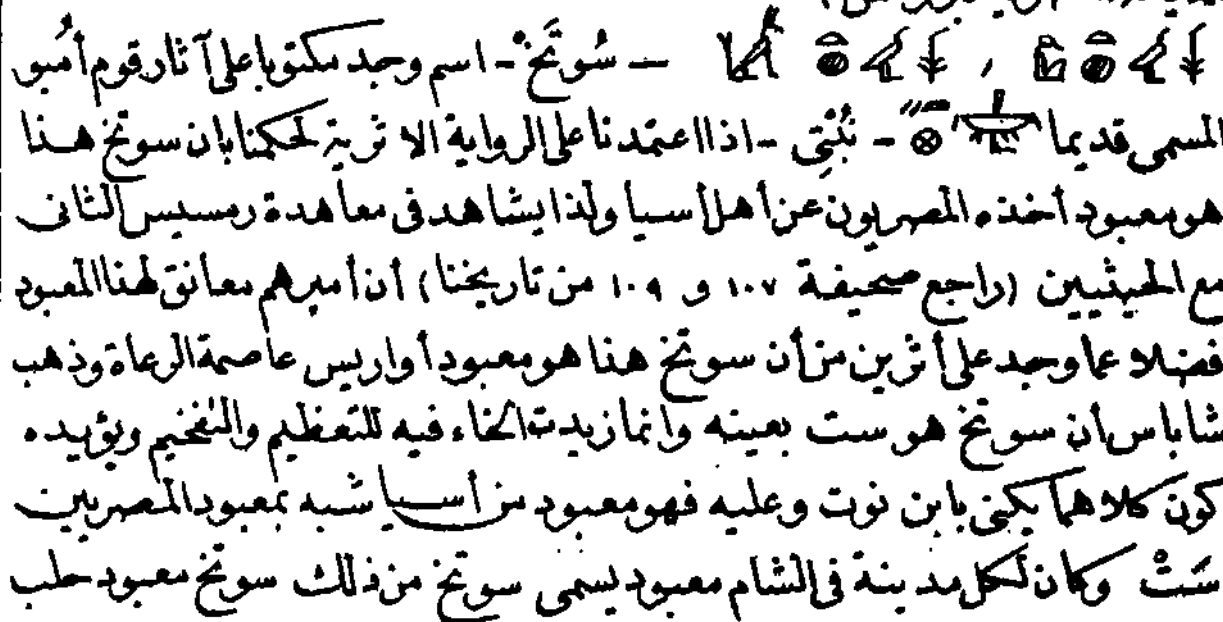 — سُوتَخْ - اسم وجد مكتوبا على آثار قوم أمبو
المسمى قديما - نُبْتِى - اذا اعتمدنا على الرواية الاثرية لحكمنا بان سوتخ هـذا
هو معبود أخذه المصريون عن أهل أسيا ولذا يشاهد فى معاهدة رمسيس الثانى
مع الحيثيين (راجع صحيفة ١٠٧ و ١٠٩ من تاريخنا) أن أميرهم معانق لهذا المعبود
فضلا عما وجد على أثرين من أن سوتخ هذا هو معبود أواريس عاصمة الرعاة وذهب
شاباس أن سوتخ هو ست بعينه وانما زيدت الخاء فيه للتعظيم والتفخيم ويؤيده
كون كلاهما يكنى بابن نوت وعليه فهو معبود من أسيا شبه بمعبود المصريين
سَتْ وكان لكل مدينة فى الشام معبود يسمى سوتخ من ذلك سوتخ معبود حلب